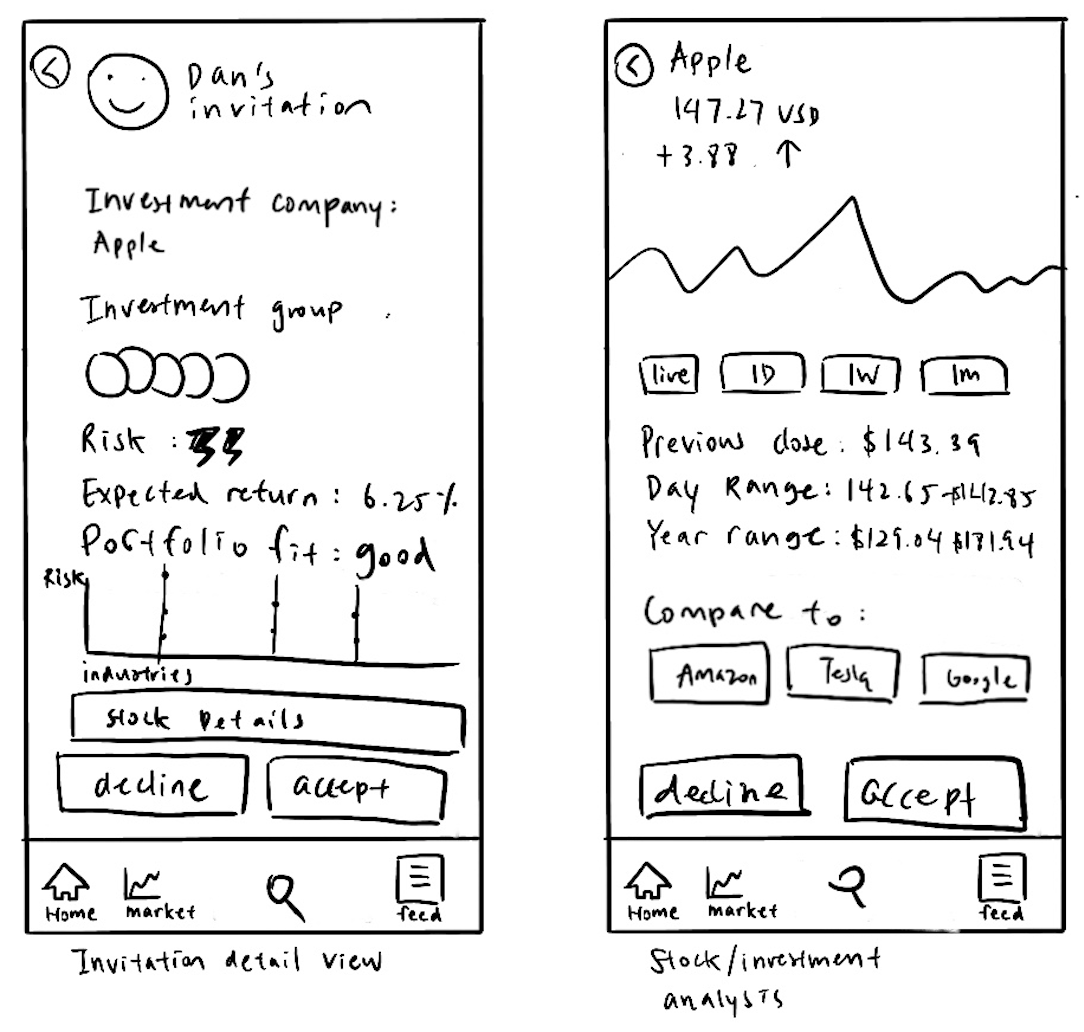 Dan's
invitation
Investment company:
Apple
Investment group
Risk:
Expected return: 6.25%
Portfolio fit: good
Risk
industries
Stock Details
decline
accept
Home
market
feed
Invitation detail view
Apple
147.27 USD
+3.88 ↑
live
1D
1W
1m
Previous close: $143.39
Day Range: 142.65-$142.85
Year range: $129.04 $181.94
Compare to:
Amazon
Tesla
Google
decline
accept
Home
market
feed
Stock/investment
analysis